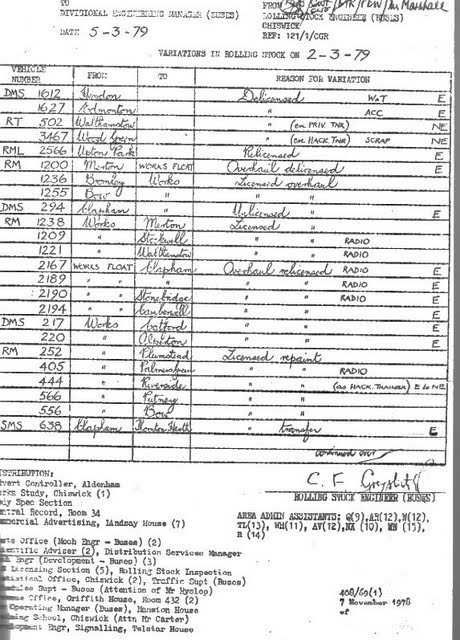 TO
DIVISIONAL ENGINEERING MANAGER (BUSES)
FROM
ROLLING STOCK ENGINEER (BUSES)
CHISWICK
DATE 5-3-79
REF: 121/1/CGR
VARIATIONS IN ROLLING STOCK ON 2-3-79
VEHICLE NUMBER FROM TO REASON FOR VARIATION
DMS 1612 Hendon Delicensed W&T E
1627 Edmonton " ACC E
RT 502 Walthamstow " (ex PRIV. TNR) NE
3467 Wood Green " (ex HACK. TNR) SCRAP NE
RML 2566 Upton Park Relicensed E
RM 1200 Merton WORKS FLOAT Overhaul delicensed E
1236 Bromley Works Licensed overhaul
1255 Bow " " "
DMS 294 Clapham Unlicensed E
RM 1238 Works Merton Licensed
1209 " Stockwell " RADIO
1221 " Walthamstow " RADIO
2167 WORKS FLOAT Clapham Overhaul relicensed RADIO E
2189 " " " " " RADIO E
2190 " " Stonebridge " " RADIO E
2194 " " Camberwell " " E
DMS 217 Works Catford " " E
220 " Alperton " " E
RM 252 " Plumstead Licensed repaint
405 " Palmers Green " " RADIO
444 " Riverside " " (as HACK. TRAINER) E to NE
566 " Putney " "
556 " Bow " "
SMS 638 Clapham Thornton Heath " transfer E
continued over
C. F.
ROLLING STOCK ENGINEER (BUSES)
ISTRIBUTION:
vert Controller, Aldenham
rks Study, Chiswick (1)
dy Spec Section
ntral Record, Room 34
mmercial Advertising, Lindsay House (7)
AREA ADMIN ASSISTANTS: Q(9), AB(12), W(12),
TL(13), WH(11), AV(12), NX (10), WN (15),
R (14)
te Office (Mech Engr - Buses) (2)
entific Adviser (2), Distribution Services Manager
Engr (Development - Buses) (3)
Licensing Section (5), Rolling Stock Inspection
tistical Office, Chiswick (2), Traffic Supt (Buses)
edules Supt - Buses (Attention of Mr Hyslop)
Office, Griffith House, Room 432 (2)
Operating Manager (Buses), Mansion House
ning School, Chiswick (Attn Mr Carter)
lopment Engr, Signalling, Telstar House
408/69(1)
7 November 1978